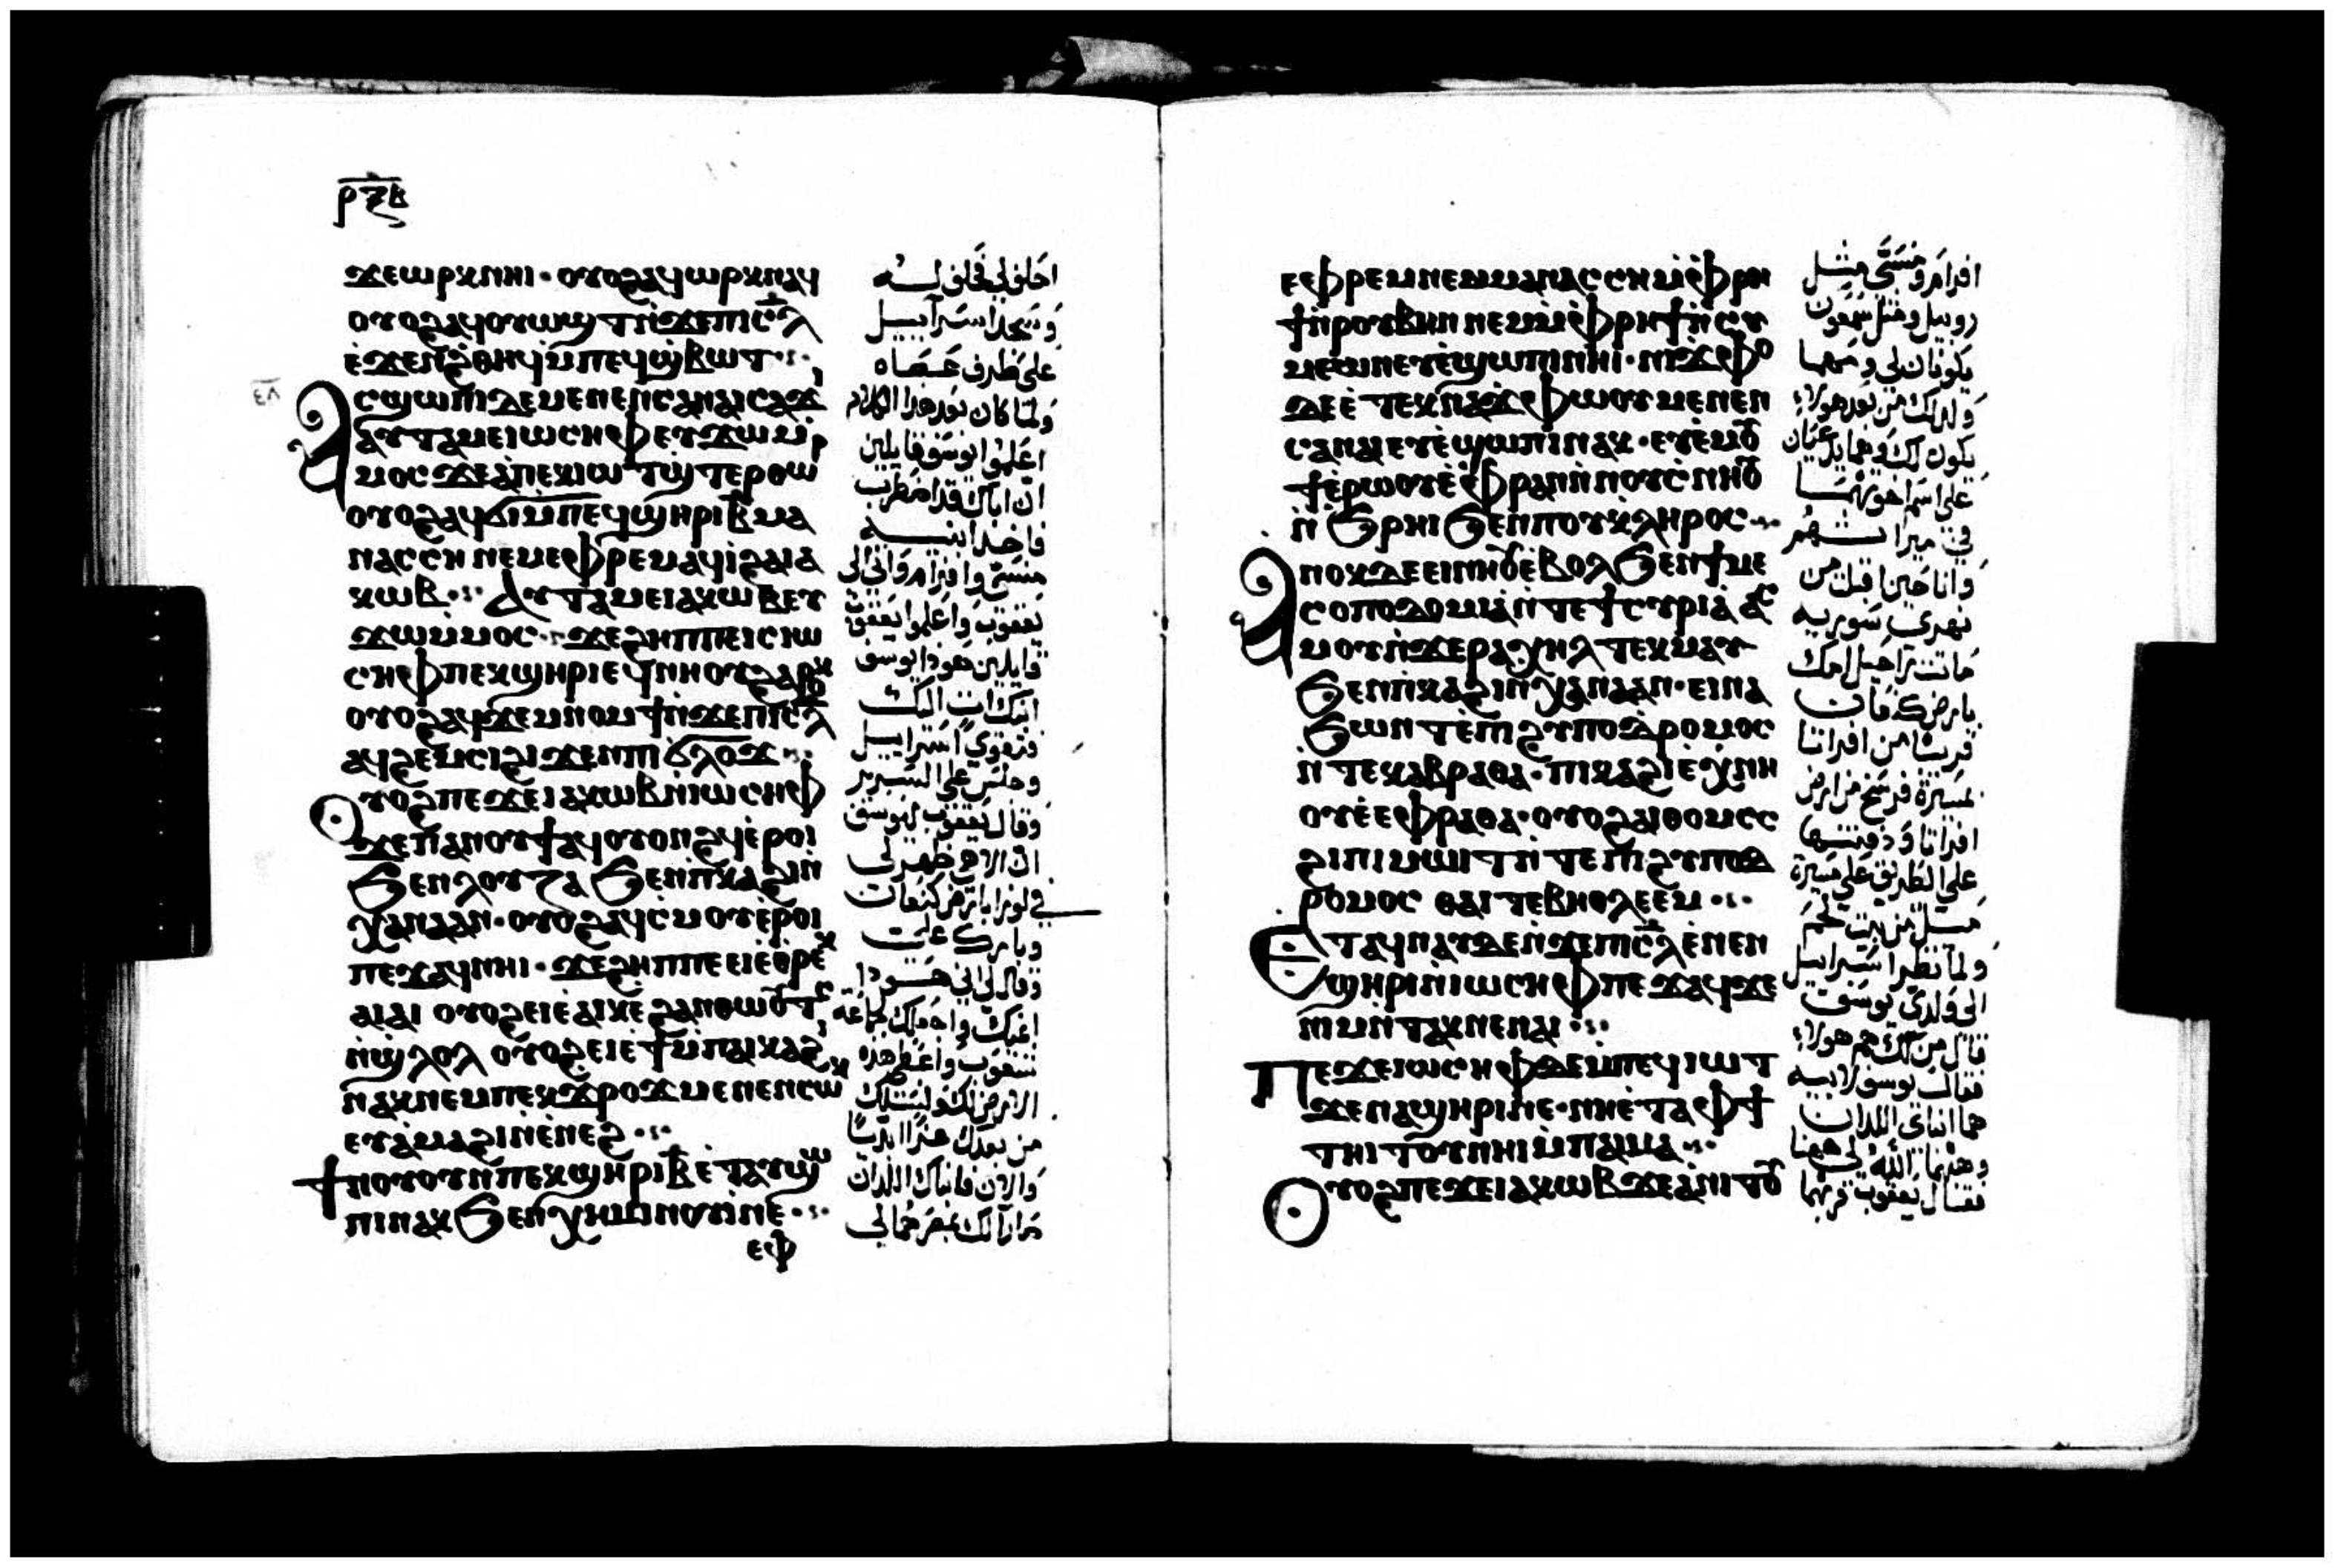 ⲣⲝⲃ
ϫⲉⲱⲣⲕⲛⲏⲓ · ⲟⲩⲟϩⲁϥⲱⲣⲕⲛⲁϥ
ⲟⲩⲟϩⲁϥⲟⲩⲱϣⲧⲛ̀ϫⲉⲡⲓⲥ̅ⲗ̅
ⲉ̀ϫⲉⲛⲑ̀ϩⲏϥⲙ̀ⲡⲉϥϣ̀ⲃⲱⲧ ·:·
ⲁⲥϣⲱⲡⲓⲇⲉⲙⲉⲛⲉⲛⲥⲁⲛⲁⲓⲥⲁϫⲓ
ⲁⲩⲧⲁⲙⲉⲓⲱⲥⲏⲫⲉⲩϫⲱⲙ̀
ⲙⲟⲥϫⲉⲁ̀ⲡⲉⲕⲓⲱⲧϣ̀ⲧⲉⲣⲑⲱⲣ
ⲟⲩⲟϩⲁϥϭⲓⲙ̀ⲡⲉϥϣⲏⲣⲓⲃ̅ⲙⲁ
ⲛⲁⲥⲥⲏ ⲛⲉⲙⲉⲫⲣⲉⲙⲁϥⲓ̀ϩⲁⲓⲁ
ⲕⲱⲃ ·:· ⲁⲩⲧⲁⲙⲉⲓⲁⲕⲱⲃⲉⲩ
ϫⲱⲙ̀ⲙⲟⲥ · ϫⲉϩⲏⲡⲡⲉⲓⲥⲓⲱ
ⲥⲏⲫⲡⲉⲕϣⲏⲣⲓⲉϥⲛⲏⲟⲩϩⲁⲣⲟⲕ
ⲟⲩⲟϩⲁϥϫⲉⲙⲛⲟⲙϯⲛ̀ϫⲉⲡⲓⲥ̅ⲗ̅
ⲁϥϩⲉⲙⲥⲓϩⲓϫⲉⲛⲡⲓϭⲗⲟϫ ·:·
ⲟⲩⲟϩⲡⲉϫⲉⲓⲁⲕⲱⲃⲛ̀ⲓⲱⲥⲏⲫ
ϫⲉⲡⲁⲛⲟⲩϯⲁϥⲟⲩⲟⲛϩϥⲉ̀ⲣⲟⲓ
ϧⲉⲛⲗⲟⲩⲍⲁ ϧⲉⲛⲡ̀ⲕⲁϩⲓⲛ̀
ⲭⲁⲛⲁⲁⲛ · ⲟⲩⲟϩⲁϥⲥ̀ⲙⲟⲩⲉ̀ⲣⲟⲓ
ⲡⲉϫⲁϥⲛⲏⲓ · ϫⲉϩⲏⲡⲡⲉⲉⲓⲉ̀ⲑⲣⲉⲕ
ⲁⲓⲁⲓ ⲟⲩⲟϩⲉⲓⲉ̀ⲁⲓⲕⲉ̀ϩⲁⲛⲑⲱⲟⲩⲧⲥ
ⲛ̀ϣ̀ⲗⲟⲗ ⲟⲩⲟϩⲉⲓⲉϯⲙ̀ⲡⲁⲓⲕⲁϩⲓ
ⲛⲁⲕⲛⲉⲙⲡⲉⲕϫ̀ⲣⲟϫⲙⲉⲛⲉⲛⲥⲱⲕ
ⲉⲩⲁ̀ⲙⲁϩⲓⲛ̀ⲉ̀ⲛⲉϩ ·:·
ϯⲛⲟⲩⲟⲩⲛⲡⲉⲕϣⲏⲣⲓⲃ̅ⲉ̀ⲧⲁⲩϣⲱ
ⲡⲓⲛⲁⲕϧⲉⲛⲭⲏⲙⲓⲛⲟⲩⲓⲛⲉ ·:·
ⲉⲫ
احلف لي فحلف له
وسجد اسرآييل
على طرف عصاه
ولما كان بعد هذا الكلام
اعلموا يوسف قايلين
ان اباك قد اضطرب
فاخذ ابنيه
منسى وافرام واتى الى
يعقوب واعلموا يعقوب
قايلين هوذا يوسف
ابنك ات اليك
فتقوى اسراييل
وجلس على السرير
وقال يعقوب ليوسف
ان الاهي ظهر لي
في لوزا بارض كنعان
وباركني
وقال لي اني هوذا
ⲉⲫⲣⲉⲙⲛⲉⲙⲙⲁⲛⲁⲥⲥⲏⲙ̀ⲫⲣⲏ
ϯⲛ̀ⲣⲟⲩⲃⲏⲛ ⲛⲉⲙⲙ̀ⲫⲣⲏϯⲛ̀ⲥⲩ
ⲙⲉⲱⲛⲉⲩⲉ̀ϣⲱⲡⲓⲛⲏⲓ · ⲛⲓϫⲫⲟ
ⲇⲉⲉ̀ⲧⲉⲕⲛⲁϫⲫⲱⲟⲩⲙⲉⲛⲉⲛ
ⲥⲁⲛⲁⲓⲉⲩⲉ̀ϣⲱⲡⲓⲛⲁⲕ · ⲉⲩⲉ̀ⲙⲟⲩ
ϯⲉ̀ⲣⲱⲟⲩⲉ̀ⲫⲣⲁⲛⲛ̀ⲛⲟⲩⲥ̀ⲛⲏⲟⲩ
ⲛ̀ϧⲣⲏⲓϧⲉⲛⲡⲟⲩⲕⲗⲏⲣⲟⲥ ·:·
ⲁⲛⲟⲕⲇⲉⲉⲓⲛⲏⲟⲩⲉ̀ⲃⲟⲗϧⲉⲛϯⲙⲉ
ⲥⲟⲡⲟⲇⲟⲙⲓⲁ̀ⲛ̀ⲧⲉϯⲥⲩⲣⲓⲁ̀ⲁⲥ
ⲙⲟⲩⲛ̀ϫⲉⲣⲁⲭⲏⲗⲧⲉⲕⲙⲁⲩ
ϧⲉⲛⲡ̀ⲕⲁϩⲓⲛ̀ⲭⲁⲛⲁⲁⲛ · ⲉⲓⲛⲁ
ϧⲱⲛⲧⲉ̀ⲡⲓϩⲩⲡⲟⲇⲣⲟⲙⲟⲥ
ⲛ̀ⲧⲉⲭⲁⲃⲣⲁⲑⲁ · ⲡⲓⲕⲁϩⲓⲉ̀ⲭⲛⲏ
ⲟⲩⲉ̀ⲉⲫⲣⲁⲑⲁ · ⲟⲩⲟϩⲁⲓⲑⲟⲙⲥⲥ
ϩⲓⲡⲓⲙⲱⲓⲧⲛ̀ⲧⲉⲡⲓϩⲩⲡⲟⲇ
ⲣⲟⲙⲟⲥ ⲑⲁⲓⲧⲉⲃⲏⲑⲗⲉⲉⲙ ·:·
ⲉⲧⲁϥⲛⲁⲩⲇⲉⲛ̀ϫⲉⲡⲓⲥ̅ⲗ̅ⲉ̀ⲛⲉⲛ
ϣⲏⲣⲓⲛ̀ⲓⲱⲥⲏⲫⲡⲉϫⲁϥϫⲉ
ⲛⲓⲙⲛ̀ⲧⲁⲕⲛⲉⲛⲁⲓ ·:·
ⲡⲉϫⲉⲓⲱⲥⲏⲫⲇⲉⲙ̀ⲡⲉϥⲓⲱⲧ
ϫⲉⲛⲁϣⲏⲣⲓⲛⲉ · ⲛⲏⲉ̀ⲧⲁⲫϯ
ⲧⲏⲓⲧⲟⲩⲛⲏⲓⲙ̀ⲡⲁⲓⲙⲁ ·:·
ⲟⲩⲟϩⲡⲉϫⲉⲓⲁⲕⲱⲃϫⲉⲁ̀ⲛⲓⲧⲟⲩ
افرام ومنسى مثل
روبيل ومثل شمعون
يكونان لي ومهما
في ميراثهم
وانا حين اقبلت من
نهري سورية
ماتت راحيل امك
على الطريق على مسيرة
ميل من بيت لحم
ولما نظر اسراييل
الى ولدي يوسف
قال من لك هم هولاء
فقال يوسف لابيه
هما ابناي اللذان
فقال يعقوب قربهما